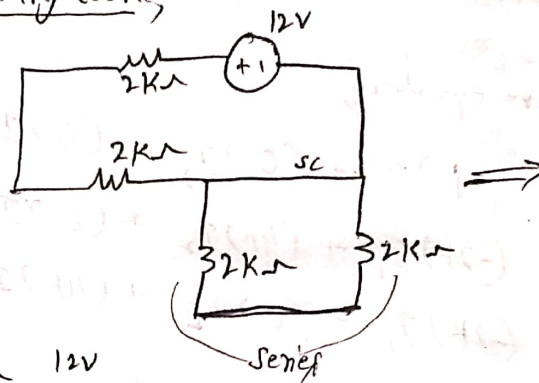 12V
+ 1
2KΩ
2KΩ
SC
2KΩ
2KΩ
series
12V